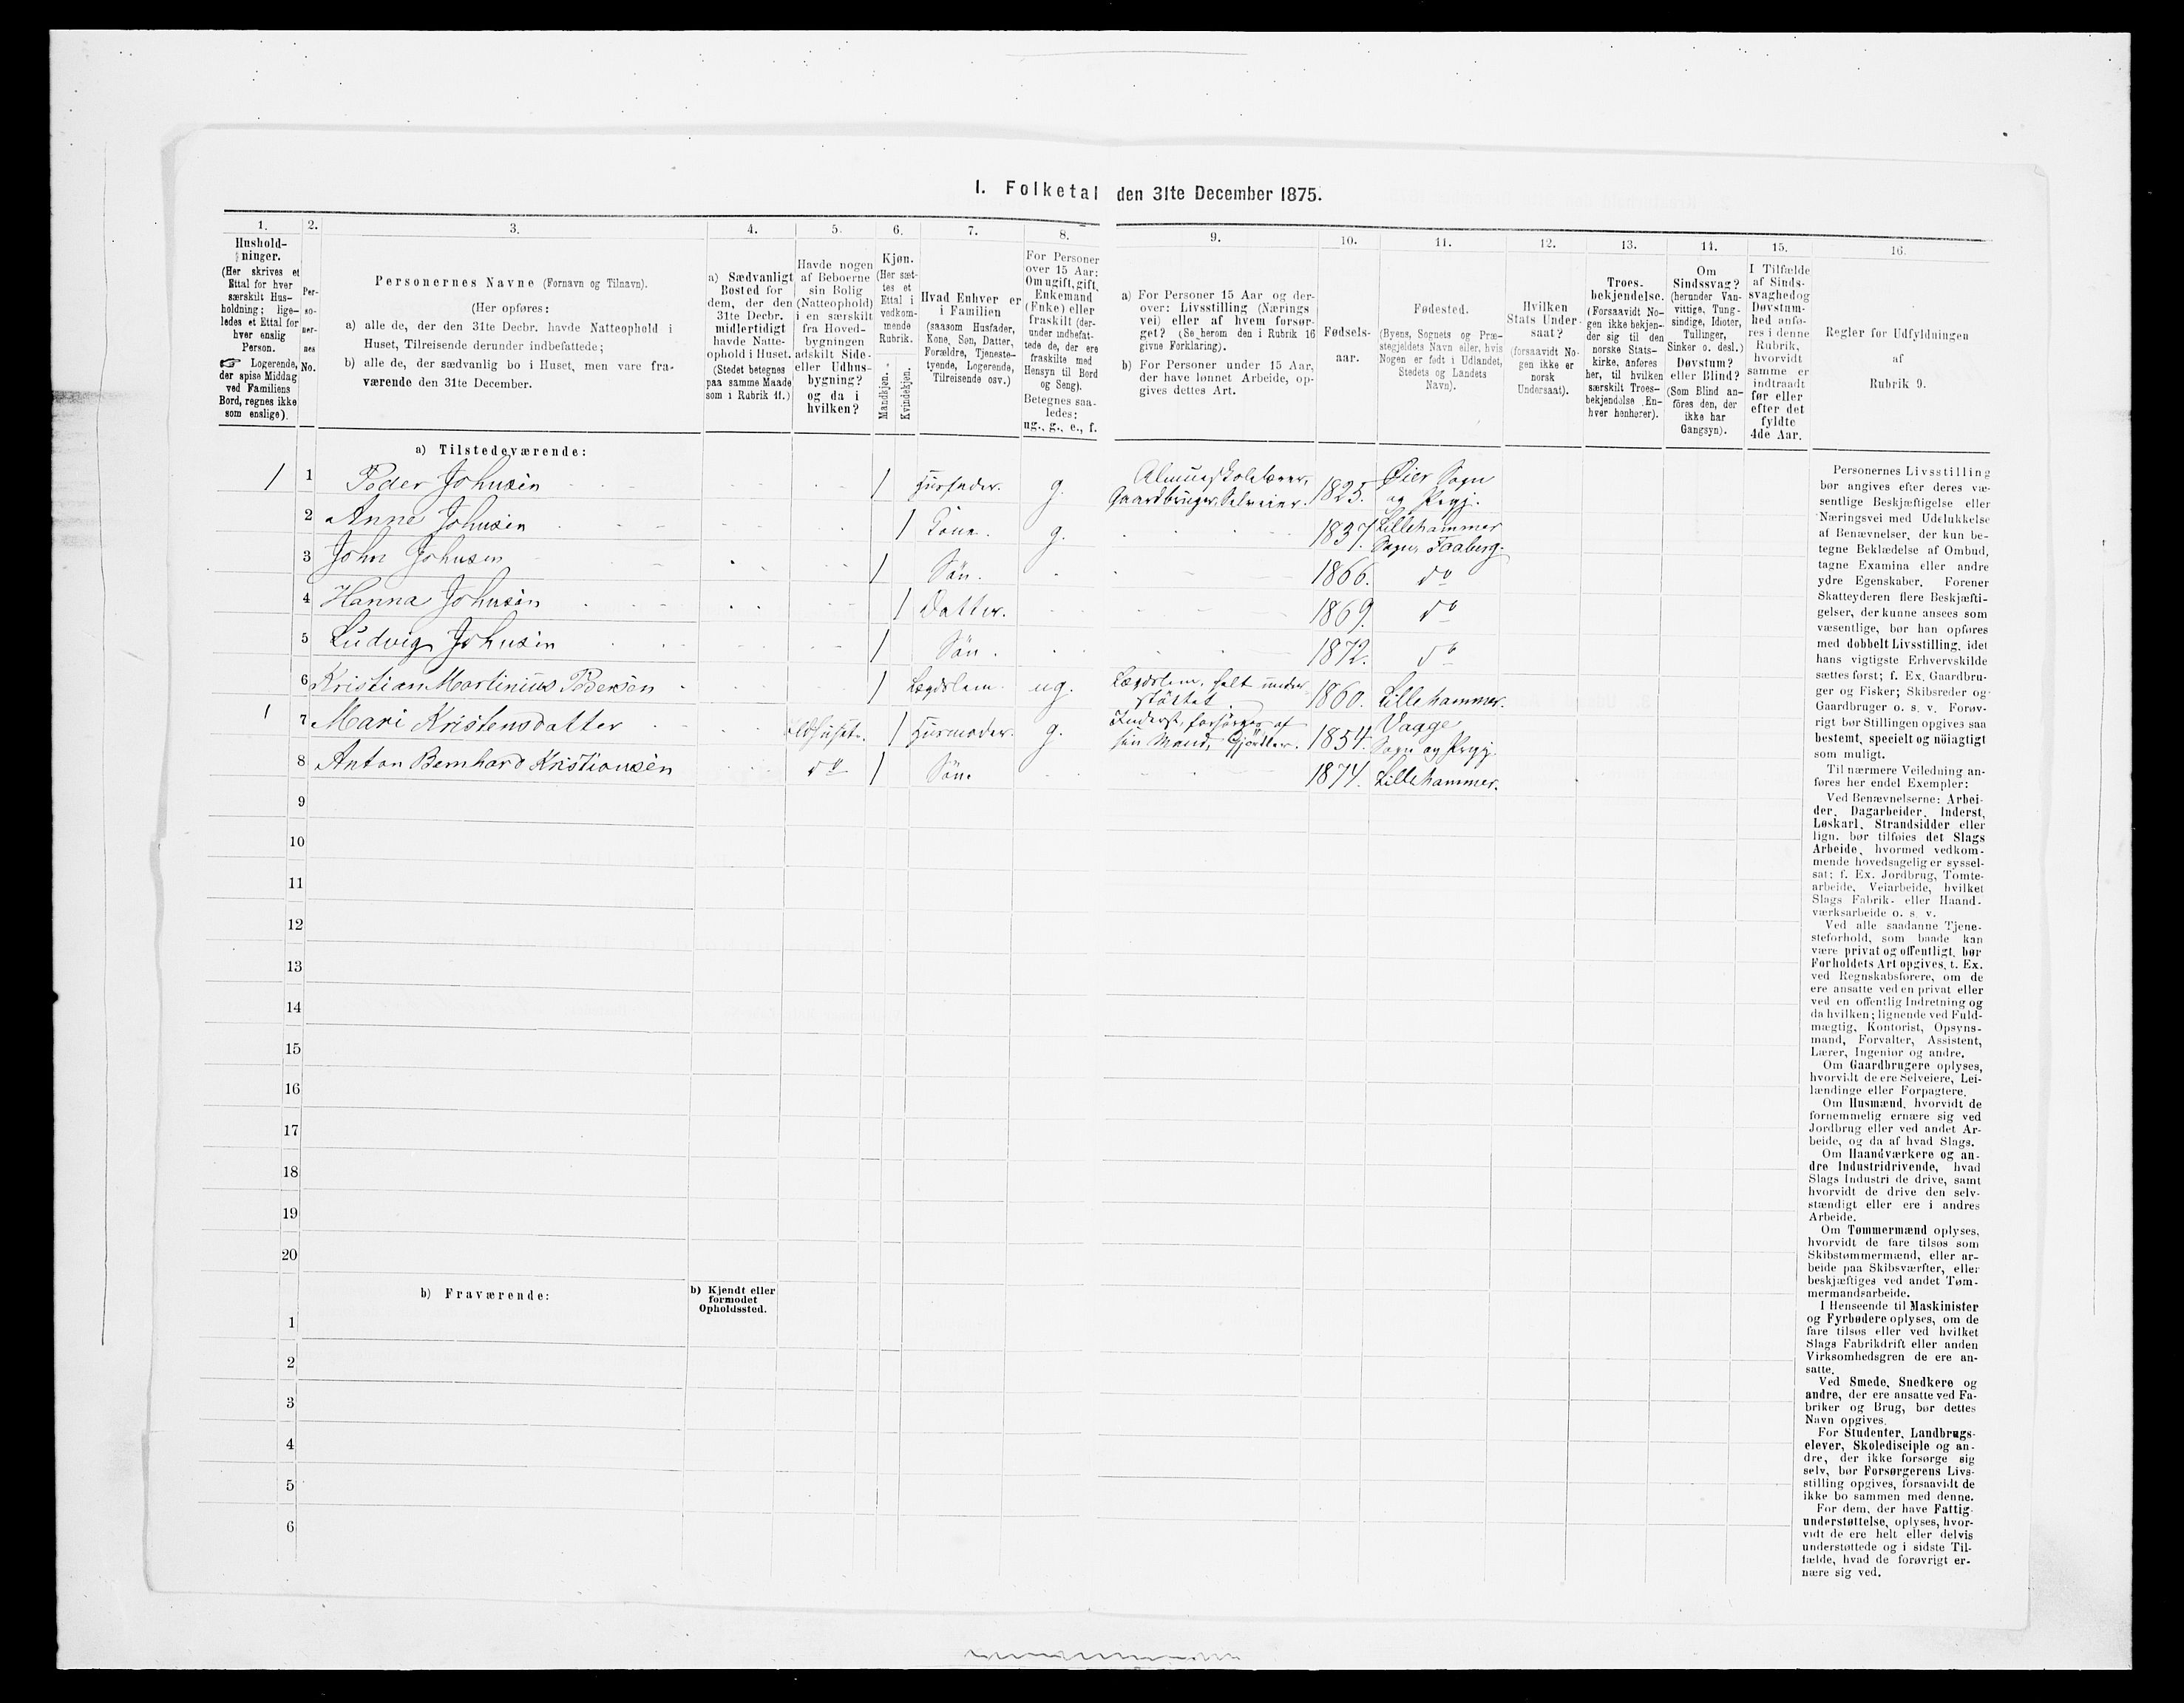 I. Folketal den 31te December 1875.
1.
Hushold-
ninger.
(Her skrives et
Ettal for hver
særskilt Hus-
holdning; lige-
ledes et Ettal for
hver enslig
Person.
☞ Logerende,
der spise Middag
ved Familiens
Bord, regnes ikke
som enslige).
2.
Per-
so-
ner-
nes
No.
3.
Personernes Navne (Fornavn og Tilnavn).
(Her opføres:
a) alle de, der den 31te Decbr. havde Natteophold i
Huset, Tilreisende derunder indbefattede;
b) alle de, der sædvanlig bo i Huset, men vare fra-
værende den 31te December.
4.
a) Sædvanligt
Bosted for
dem, der den
31te Decbr.
midlertidigt
havde Natte-
ophold i Huset.
(Stedet betegnes
paa samme Maade
som i Rubrik 11.)
5.
Havde nogen
af Beboerne
sin Bolig
(Natteophold)
i en særskilt
fra Hoved-
bygningen
adskilt Side-
eller Udhus-
bygning?
og da i
hvilken?
6.
Kjøn.
(Her sæt-
tes et
Ettal i
vedkom-
mende
Rubrik.
Mandkjøn.
Kvindekjøn.
7.
Hvad Enhver er
i Familien
(saasom Husfader,
Kone, Søn, Datter,
Forældre, Tjeneste-
tyende, Logerende,
Tilreisende osv.)
8.
For Personer
over 15 Aar:
Om ugift, gift,
Enkemand
(Enke) eller
fraskilt (der-
under indbefat-
tede de, der ere
fraskilte med
Hensyn til Bord
og Seng).
Betegnes saa-
ledes:
ug., g., e., f.
9.
a) For Personer 15 Aar og der-
over: Livsstilling (Nærings
vei) eller af hvem forsør-
get? (Se herom den i Rubrik 16
givne Forklaring).
b) For Personer under 15 Aar,
der have lønnet Arbeide, op-
gives dettes Art.
10.
Fødsels-
aar.
11.
Fødested.
(Byens, Sognets og Præ-
stegjeldets Navn eller, hvis
Nogen er født i Udlandet,
Stedets og Landets
Navn).
12.
Hvilken
Stats Under-
saat?
(forsaavidt No-
gen ikke er
norsk
Undersaat).
13.
Troes-
bekjendelse.
(Forsaavidt No-
gen ikke bekjen-
der sig til den
norske Stats-
kirke, anføres
her, til hvilken
særskilt Troes-
bekjendelse En-
hver henhører).
14.
Om
Sindssvag?
(herunder Van-
vittige, Tung-
sindige, Idioter,
Tullinger,
Sinker o. desl.)
Døvstum?
eller Blind?
(Som Blind an-
føres den, der
ikke har
Gangsyn).
15.
I Tilfælde
af Sinds-
svaghed og
Døvstum-
hed anfø-
res i denne
Rubrik,
hvorvidt
samme er
indtraadt
før eller
efter det
fyldte
4de Aar.
16.
Regler for Udfyldningen
af
Rubrik 9.
a) Tilstedeværende:
1 1 Peder Johnsen 1 Husfader. g. Almueskolelærer, Gaardbruger, Selveier. 1825. Øier Sogn og Prgj.
2 Anne Johnsen 1 Kone. g. 1837. Lillehammer Sogn, Faaberg.
3 John Johnsen 1 Søn. 1866. do
4 Hanna Johnsen 1 Datter. 1869. do
5 Ludvig Johnsen 1 Søn. 1872. do
6 Kristian Martinius 1 Lægdslem. ug. Lægdslem, helt under støttet. 1860. Lillehammer.
1 7 Mari Kristensdatter Ildhuset. 1 Husmoder. g. Inderst, forsørges af sin Mand, 1854. Vaage Sogn og Prgj.
8 Anton Bernhard Kristiansen do 1 Søn. 1874. Lillehammer.
9
10
11
12
13
14
15
16
17
18
19
20
b) Fraværende:
b) Kjendt eller
formodet
Opholdssted.
1
2
3
4
5
6
Personernes Livsstilling
bør angives efter deres væ-
sentlige Beskjæftigelse eller
Næringsvei med Udelukkelse
af Benævnelser, der kun be-
tegne Beklædelse af Ombud,
tagne Examina eller andre
ydre Egenskaber. Forener
Skatteyderen flere Beskjæfti-
gelser, der kunne ansees som
væsentlige, bør han opføres
med dobbelt Livsstilling, idet
hans vigtigste Erhvervskilde
sættes først; f. Ex. Gaardbru-
ger og Fisker; Skibsreder og
Gaardbruger o. s. v. Forøv-
rigt bør Stillingen opgives saa
bestemt, specielt og nöiagtigt
som muligt.
Til nærmere Veiledning an-
føres her endel Exempler:
Ved Benævnelserne: Arbei-
der, Dagarbeider, Inderst,
Løskarl, Strandsidder eller
lign. bør tilføies det Slags
Arbeide, hvormed vedkom-
mende hovedsagelig er syssel-
sat; f. Ex. Jordbrug, Tomte-
arbeide, Veiarbeide, hvilket
Slags Fabrik- eller Haand-
værksarbeide o. s. v.
Ved alle saadanne Tjene-
steforhold, som baade kan
være privat og offentligt, bør
Forholdets Art opgives, t. Ex.
ved Regnskabsførere, om de
ere ansatte ved en privat eller
ved en offentlig Indretning og
da hvilken; lignende ved Fuld-
mægtig, Kontorist, Opsyns-
mand, Forvalter, Assistent,
Lærer, Ingeniør og andre.
Om Gaardbrugere oplyses,
hvorvidt de ere Selveiere, Lei-
lændinge eller Forpagtere.
Om Husmænd, hvorvidt de
fornemmelig ernære sig ved
Jordbrug eller ved andet Ar-
beide, og da af hvad Slags.
Om Haandværkere og an-
dre Industridrivende, hvad
Slags Industri de drive, samt
hvorvidt de drive den selv-
stændigt eller ere i andres
Arbeide.
Om Tømmermænd oplyses,
hvorvidt de fare tilsøs som
Skibstømmermænd, eller ar-
beide paa Skibsværfter, eller
beskjæftiges ved andet Tøm-
mermandsarbeide.
I Henseende til Maskinister
og Fyrbødere oplyses, om de
fare tilsøs eller ved hvilket
Slags Fabrikdrift eller anden
Virksomhedsgren de ere an-
satte.
Ved Smede, Snedkere og
andre, der ere ansatte ved Fa-
briker og Brug, bør dettes
Navn opgives.
For Studenter, Landbrugs-
elever, Skoledisciple og an-
dre, der ikke forsørge sig
selv, bør Forsørgerens Livs-
stilling opgives, forsaavidt de
ikke bo sammen med denne.
For dem, der have Fattig-
understøttelse, oplyses, hvor-
vidt de ere helt eller delvis
understøttede og i sidste Til-
fælde, hvad de forøvrigt er-
nære sig ved.